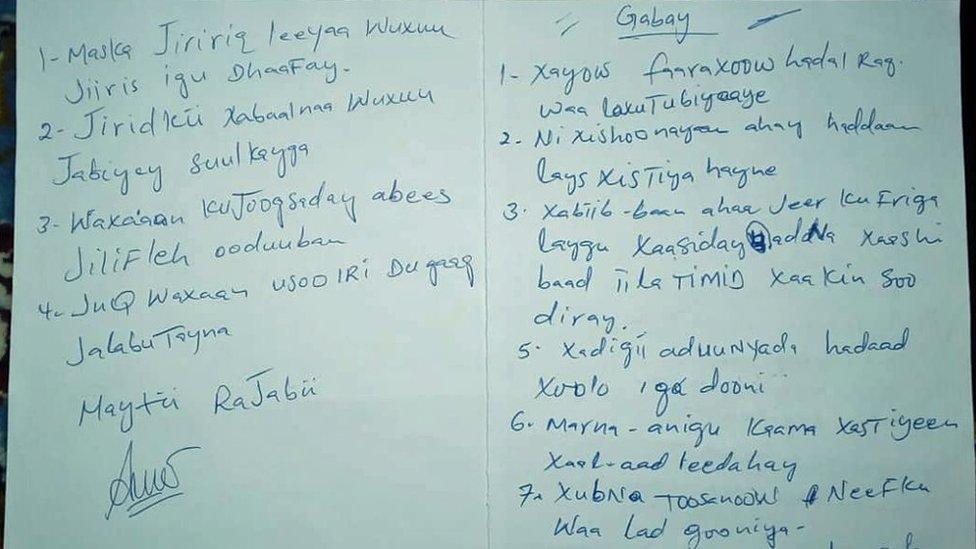 1- Maska Jiririq leeyaa Wuxuu
Jiiris igu DhaaFay.
2- Jiridkii Xabaalnaa Wuxuu
Jabiyey Suulkayga
3- Waxaaan KuJoogsaday abees
JiliFleh ooduuban
4- JuQ Waxaan USOO IRI Dugaag
JalabuTayna
Maytii RaJabii
Gabay
1- Xayow faaraxoow hadal Rag.
Waa laxuTubiyaaye
2. Ni Xishoonayaan ahay haddaan
lays XisTiya hayne
3. Xabiib-baan ahaa Jeer KuFriga
laygu Xaasiday hadNa Xaashi
baad iila TIMID Xaakin Soo
diray.
5. Xadigii aduuNyada hadaad
Xoolo iga dooni
6. Marna - anigu Kaama XasTiyeen
Xaal-aad leedahay
7. XubNa Toosanoow NeeFku
Waa lad gooniya-